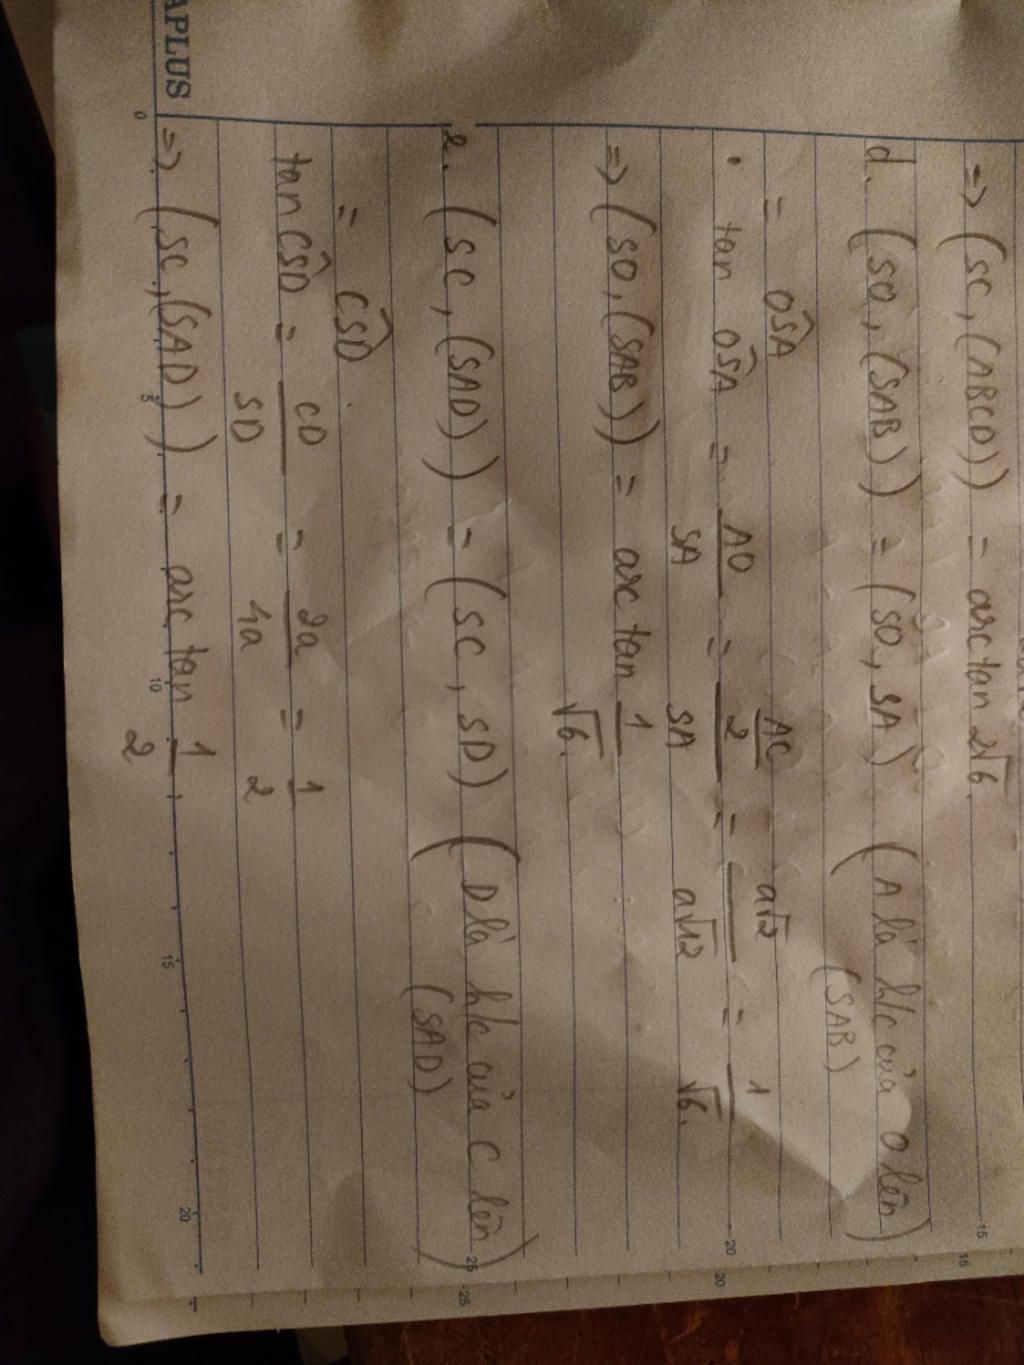 => (SC, (ABCD)) = arctan 2√6.
d. (SO, (SAB)) = (SO, SA) (A là h/c của O lên (SAB)
= OŜA
• tan OŜA = AO/SA = (AC/2)/SA = a√2/a√12 = 1/√6.
=> (SO, (SAB)) = arc tan 1/√6.
e. (SC, (SAD)) = (SC, SD) (D là h/c của C lên (SAD))
= CŜD.
tan CŜD = CD/SD = 2a/4a = 1/2
=> (SC, (SAD)) = arc tan 1/2
APLUS
0 5 10 15 20
15 20 25
15 20 25